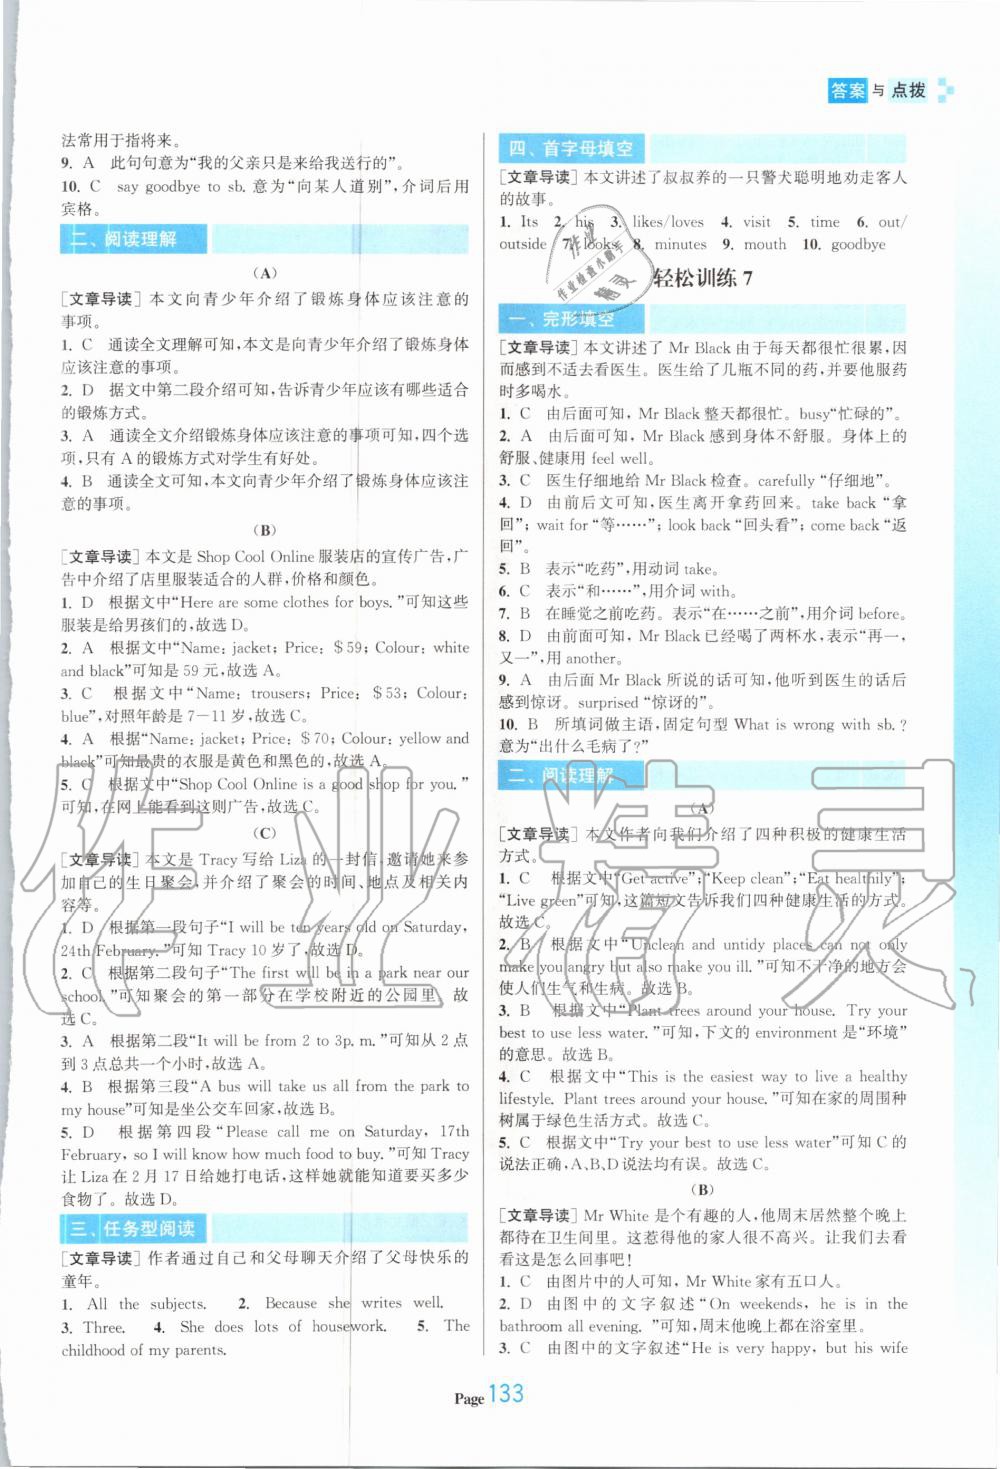 答案与点拨
法常用于指将来。
9. A 此句句意为“我的父亲只是来给我送行的”。
10. C say goodbye to sb. 意为“向某人道别”,介词后用
宾格。
二、阅读理解
(A)
[文章导读] 本文向青少年介绍了锻炼身体应该注意的
事项。
1. C 通读全文理解可知,本文是向青少年介绍锻炼身体
应该注意的事项。
2. D 据文中第二段介绍可知,告诉青少年应该有哪些适合
的锻炼方式。
3. A 通读全文介绍锻炼身体应该注意的事项可知,四个选
项,只有 A 的锻炼方式对学生有好处。
4. B 通读全文可知,本文向青少年介绍了锻炼身体应该注
意的事项。
(B)
[文章导读] 本文是 Shop Cool Online 服装店的宣传广告,广
告中介绍了店里服装适合的人群,价格和颜色。
1. D 根据文中“Here are some clothes for boys.”可知这些
服装是给男孩们的,故选 D。
2. A 根据文中“Name: jacket; Price: $59; Colour: white
and black”可知是 59 元,故选 A。
3. C 根据文中“Name: trousers; Price: $53; Colour:
blue”,对照年龄是 7—11 岁,故选 C。
4. A 根据“Name: jacket; Price: $70; Colour: yellow and
black”可知最贵的衣服是黄色和黑色的,故选 A。
5. C 根据文中“Shop Cool Online is a good shop for you.”
可知,在网上能看到这则广告,故选 C。
(C)
[文章导读] 本文是 Tracy 写给 Liza 的一封信,邀请她来参
加自己的生日聚会,并介绍了聚会的时间、地点及相关内
容等。
1. D 根据第一段句子“I will be ten years old on Saturday,
24th February.”可知 Tracy 10 岁了,故选 D。
2. C 根据第二段句子“The first will be in a park near our
school.”可知聚会的第一部分在学校附近的公园里,故
选 C。
3. A 根据第二段“It will be from 2 to 3p. m.”可知,从 2 点
到 3 点总共一个小时,故选 A。
4. B 根据第三段“A bus will take us all from the park to
my house”可知是坐公交车回家,故选 B。
5. D 根据第四段“Please call me on Saturday, 17th
February, so I will know how much food to buy.”可知 Tracy
让 Liza 在 2 月 17 日给她打电话,这样她就能知道要买多少
食物了。故选 D。
三、任务型阅读
[文章导读] 作者通过自己和父母聊天介绍了父母快乐的
童年。
1. All the subjects. 2. Because she writes well.
3. Three. 4. She does lots of housework. 5. The
childhood of my parents.
四、首字母填空
[文章导读] 本文讲述了叔叔养的一只警犬聪明地劝走客人
的故事。
1. Its 2. his 3. likes/loves 4. visit 5. time 6. out/
outside 7. looks 8. minutes 9. mouth 10. goodbye
轻松训练 7
一、完形填空
[文章导读] 本文讲述了 Mr Black 由于每天都很忙很累,因
而感到不适去看医生。医生给了几瓶不同的药,并要他服药
时多喝水。
1. C 由后面可知,Mr Black 整天都很忙。busy“忙碌的”。
2. A 由后面可知,Mr Black 感到身体不舒服。身体上的
舒服、健康用 feel well。
3. C 医生仔细地给 Mr Black 检查。carefully “仔细地”。
4. D 由前后文可知,医生离开拿药回来。take back “拿
回”; wait for “等……”; look back “回头看”; come back “返
回”。
5. B 表示“吃药”,用动词 take。
6. C 表示“和……”,用介词 with。
7. B 在睡觉之前吃药。表示“在……之前”,用介词 before。
8. D 由前面可知,Mr Black 已经喝了两杯水,表示“再一,
又一”,用 another。
9. A 由后面 Mr Black 所说的话可知,他听到医生的话后
感到惊讶。surprised “惊讶的”。
10. B 所填词做主语,固定句型 What is wrong with sb.?
意为“出什么毛病了?”
二、阅读理解
(A)
[文章导读] 本文作者向我们介绍了四种积极的健康生活
方式。
1. C 根据文中“Get active”;“Keep clean”;“Eat healthily”;
“Live green”可知,这篇短文告诉我们四种健康生活的方式。
故选 C。
2. B 根据文中“Unclean and untidy places can not only
make you angry but also make you ill.”可知不干净的地方会
使人们生气和生病。故选 B。
3. B 根据文中“Plant trees around your house. Try your
best to use less water.”可知,下文的 environment 是“环境”
的意思。故选 B。
4. C 根据文中“This is the easiest way to live a healthy
lifestyle. Plant trees around your house.”可知在家的周围种
树属于绿色生活方式。故选 C。
5. C 根据文中“Try your best to use less water”可知 C 的
说法正确,A、B、D 说法都是错误的。故选 C。
(B)
[文章导读] Mr White 是个有趣的人,他周末居然整个晚上
都待在卫生间里。这惹得他的家人很不高兴。让我们看
看这是怎么回事吧!
1. C 由图片中的人可知,Mr White 家有五口人。
2. D 由图中的文字叙述“On weekends, he is in the
bathroom all evening.”可知,周末他晚上都在浴室里。
3. C 由图中的文字叙述“He is very happy, but his wife
Page 133
作业精灵
作业
作业检查小助手
精灵